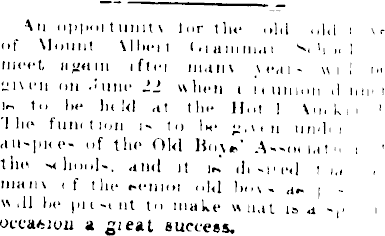 An opportunity for the old
of Mount Albert Grammar School
meet again after many years will
given on June 22 when a reunion
is to be held at the Hotel
The function is to be given under
auspices of the Old Boys' Association
the schools, and it is desired
many of the senior old boys as
will be present to make what is a
occasion a great success.